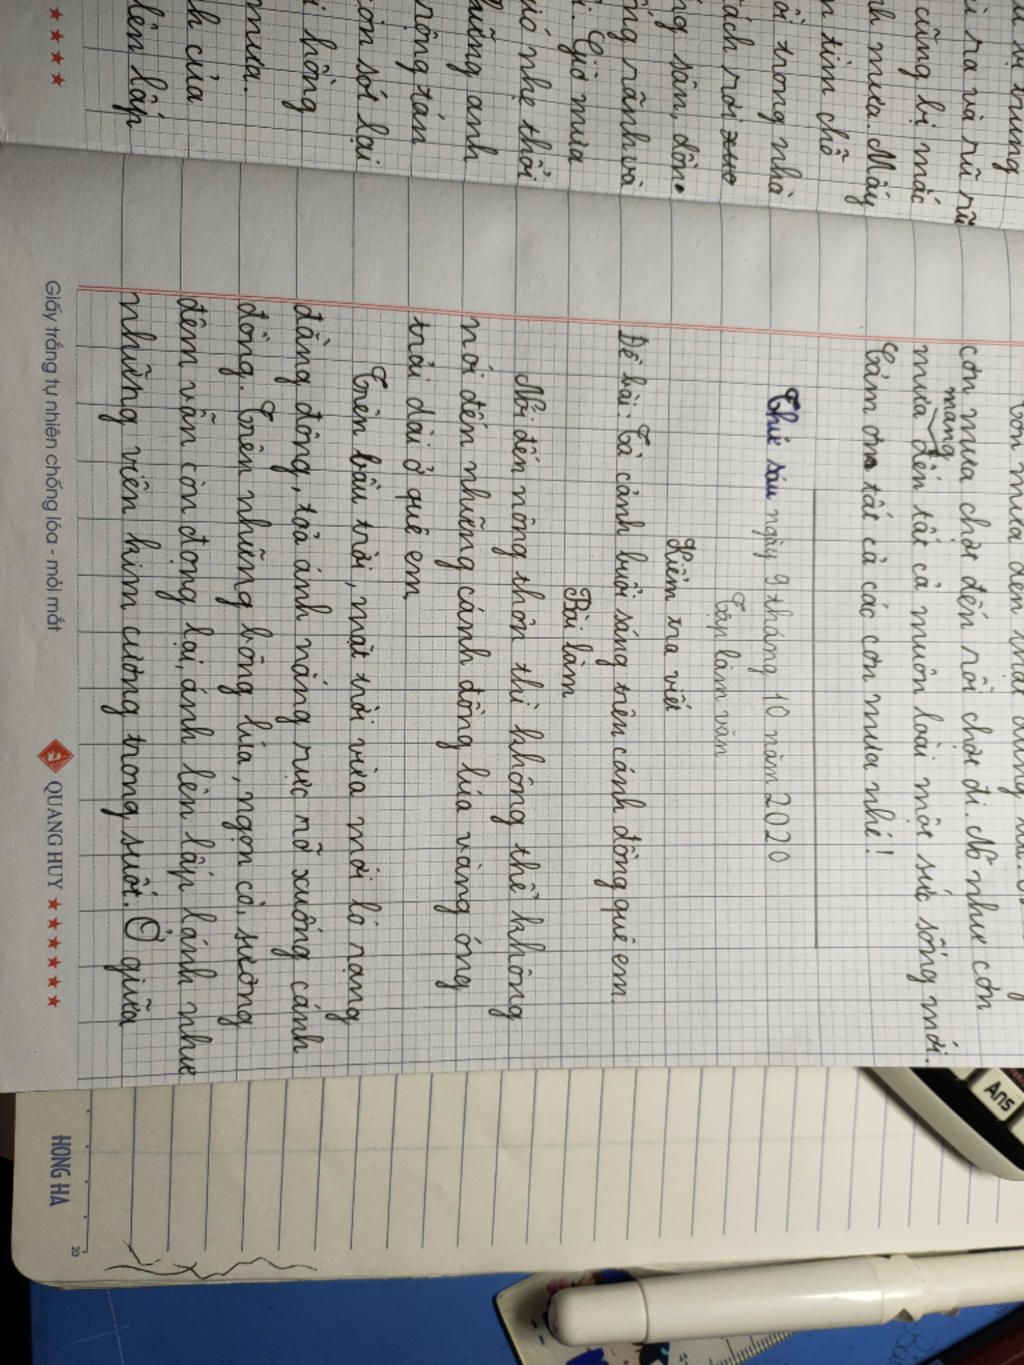 ì ra và rũ rũ
cũng bị mác
nh mưa. Mấy
n tim chỗ
ồi trong nhà
ách rơi xuo
ng sân, dồn
ng rãnh và
. Giờ mưa
ió nhẹ thổi
hững anh
rộng tán
còn sót lại
i hồng
mưa.
h của
lên lấp
cơn mưa chợt đến rồi chợt đi. Nó như cơn
mang
mưa đến tất cả muôn loài một sức sống mới.
Cảm ơn tất cả các cơn mưa nhé!
Thứ sáu ngày 9 tháng 10 năm 2020
Tập làm văn
Kiểm tra viết
Đề bài: Tả cảnh buổi sáng trên cánh đồng quê em
Bài làm
Nói đến nông thôn thì không thể không
nói đến những cánh đồng lúa vàng óng
trải dài ở quê em.
Trên bầu trời, mặt trời vừa mới ló rạng
đằng đông, toả ánh nắng rực rỡ xuống cánh
đồng. Trên những bông lúa, ngọn cỏ, sương
đêm vẫn còn đọng lại, ánh lên lấp lánh như
những viên kim cương trong suốt. Ở giữa
Giấy trắng tự nhiên chống lóa - mỏi mắt
QUANG HUY
HONG HA
20
Ans